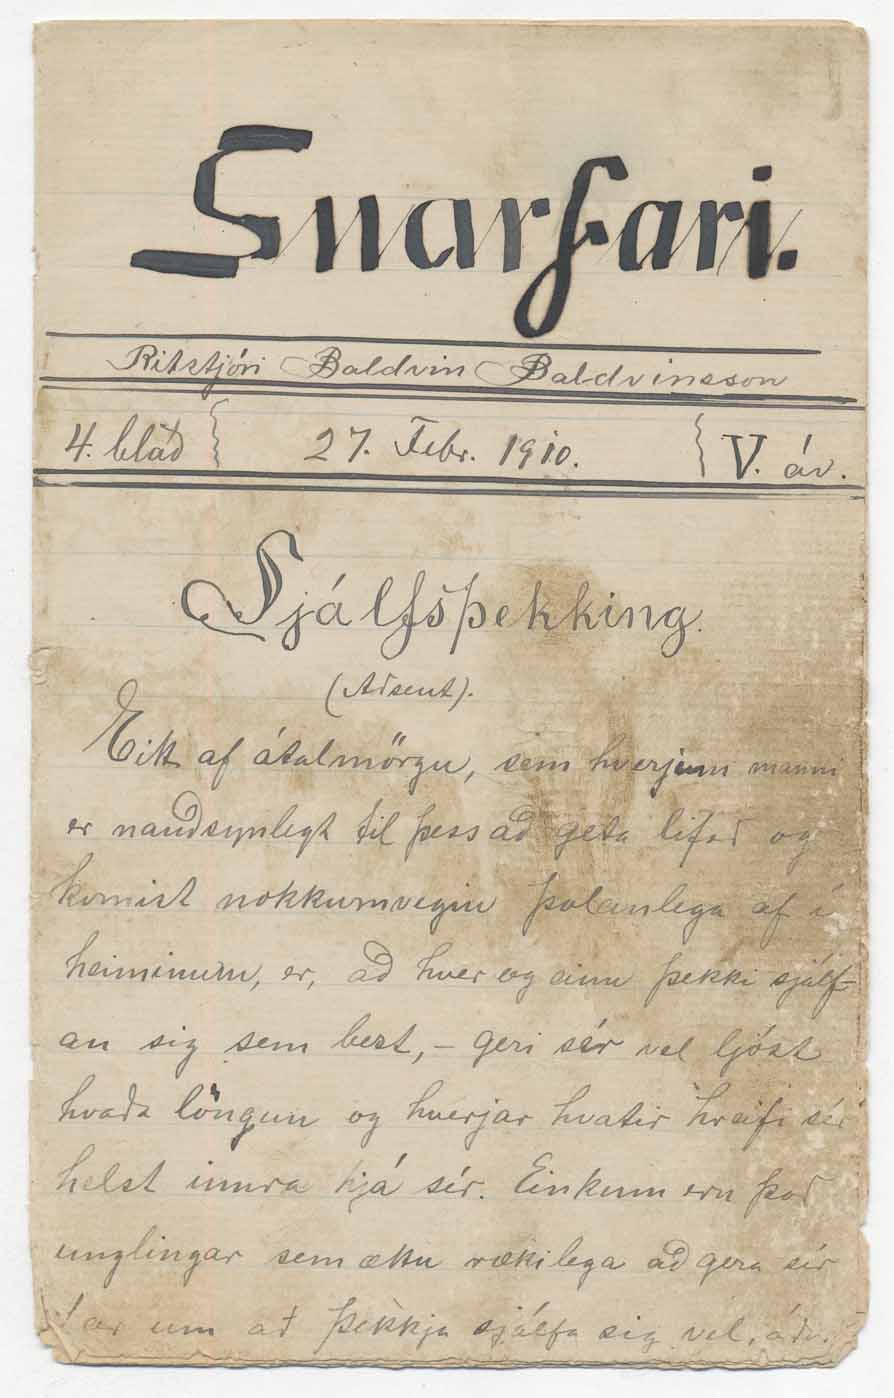 Snarfari.
Ritstjóri Baldvin Baldvinsson
4. blað 27. Febr. 1910. V. áv.
Sjálfsþekking.
(Aðsent).
Eitt af ótalmörgu, sem hverjum manni
er nauðsynlegt til þess að geta lifað og
komist nokkurnvegin þolanlega af í
heiminum, er, að hver og einn þekki sjálf-
an sig sem bezt, - geri sér vel ljóst
hvaða löngun og hverjar hvatir hreifi sér
helst innra hjá sér. Einkum eru það
unglingar sem ættu rækilega að gera sér
far um að þekkja sjálfa sig vel,